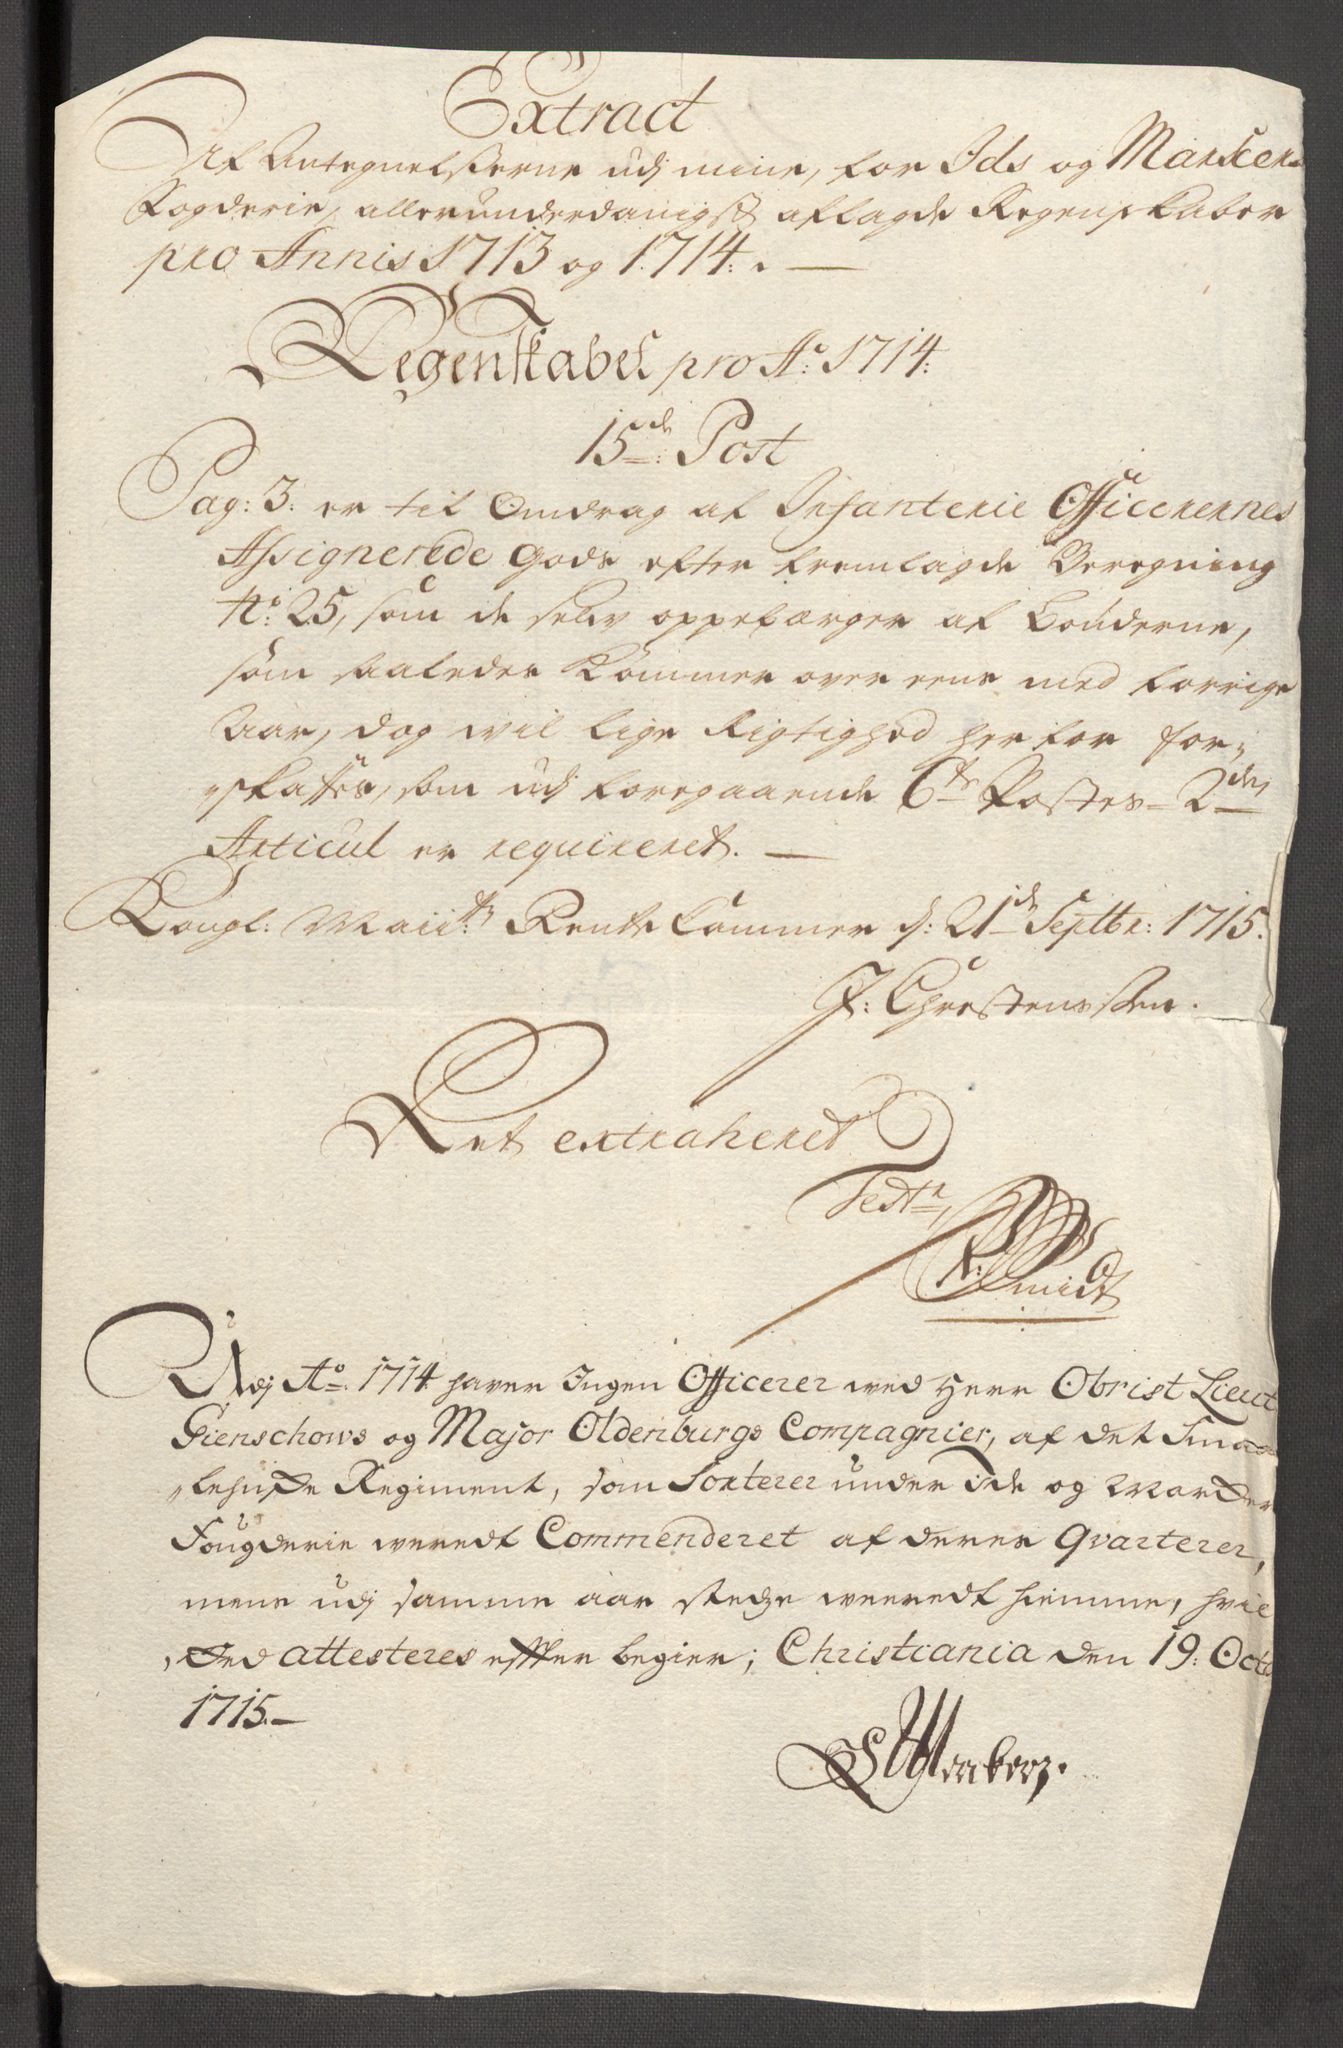 Extract
Af Antegnelserne udj mine, for Ids og Marker
Fogderie, allerunderdanigst aflagde Regenskaber
pro Annis 1713 og 1714.
Regenskabet pro Ao: 1714:
15de: Post
Pag: 3: er til Omdrag af Infanterie Officerernes
Assignerede Gods efter fremlagde Beregning
No: 25, som de selv oppebærger af Bønderne,
som saaledes kommer over eens med forrige
Aar, dog vil lige Rigtighed her for for,,
,,skaffes, som udj foregaaende 6te Postes 2den
Articul er requireret.
Kongl: Maiits: Rente Cammer d: 21de Septbr: 1715.
J: Christenssen.
Ret extraheret
Test:
Smidt
Udj Ao: 1714 haver Ingen Officerer ved Herr Obrist Lieut
Gienschows og Major Oldenburgs Compagnier, af det Smaa
,,lehnske Regiment, som Sorterer under Ide og Marker
Fougderie weredt Commenderet af deres Qvarterer,
mens udj samme aar stedze weeredt hiemme, hvil
,,ked attesteres effter begier; Christiania den 19: Octb
1715.